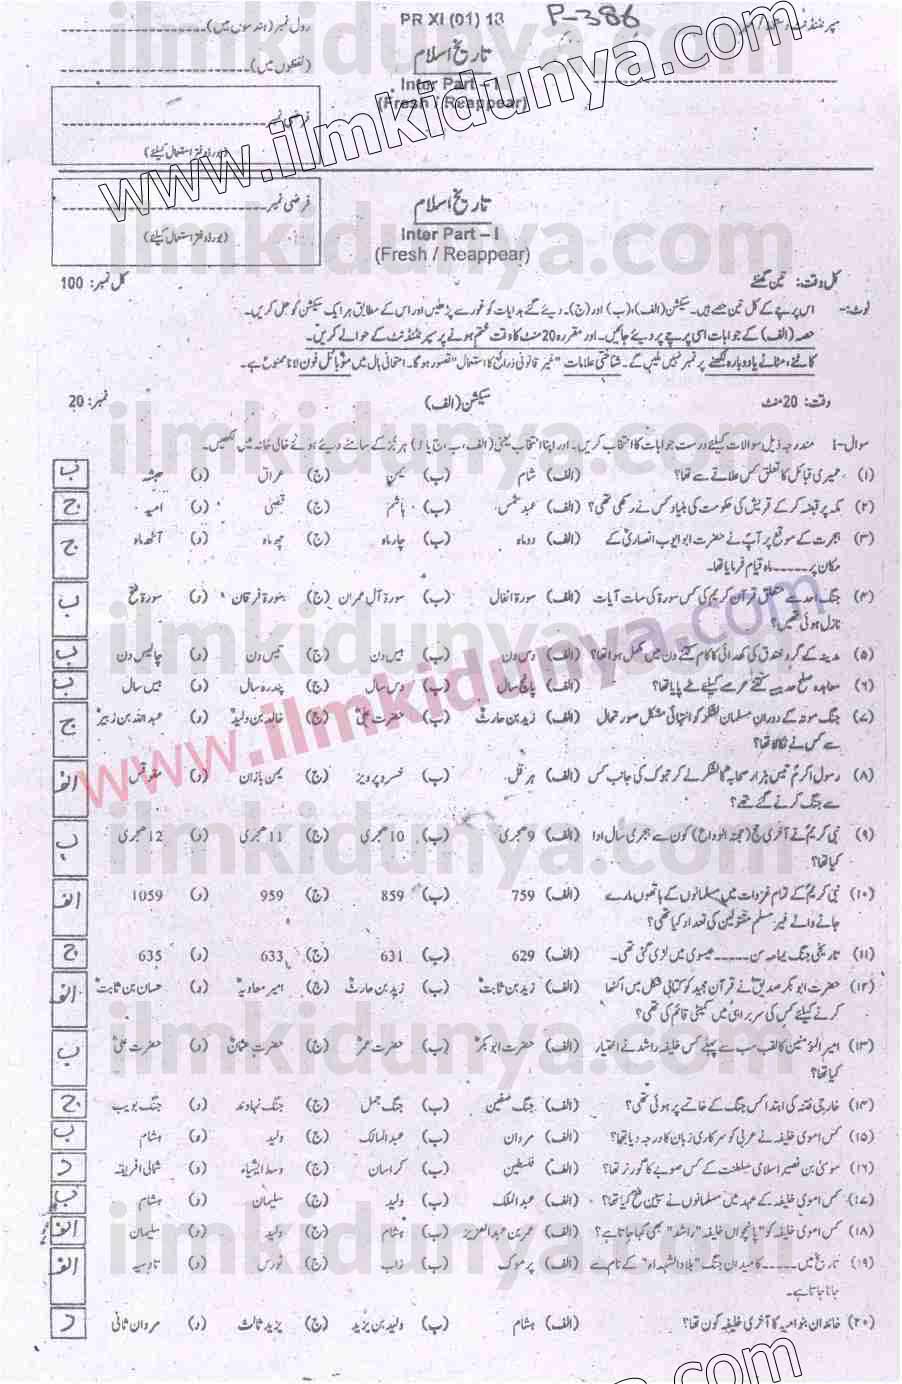 PR XI (01) 13
P-386
رول نمبر (ہندسوں میں)
(لفظوں میں)
تاریخ اسلام
Inter Part – I
(Fresh / Reappear)
فرضی نمبر
(بورڈ دفتر استعمال کیلئے)
www.ilmkidunya.com
تاریخ اسلام
Inter Part – I
(Fresh / Reappear)
فرضی نمبر
(بورڈ دفتر استعمال کیلئے)
کل وقت: تین گھنٹے کل نمبر: 100
نوٹ:- اس پرچے کے کل تین حصے ہیں۔ سیکشن (الف)، (ب) اور (ج)۔ دیئے گئے ہدایات کو غور سے پڑھیں اور اس کے مطابق ہر ایک سیکشن کو حل کریں۔
حصہ (الف) کے جوابات اسی پرچے پر دیئے جائیں۔ اور مقررہ 20 منٹ کا وقت ختم ہونے پر سپرنٹنڈنٹ کے حوالے کریں۔
کاٹنے، مٹانے یا دوبارہ لکھنے پر نمبر نہیں ملیں گے۔ شناختی علامات "غیر قانونی ذرائع کا استعمال" تصور ہوگا۔ امتحانی ہال میں موبائل فون لانا ممنوع ہے۔
وقت: 20 منٹ سیکشن (الف) نمبر: 20
سوال-i مندرجہ ذیل سوالات کیلئے درست جوابات کا انتخاب کریں۔ اور اپنا انتخاب یعنی (الف، ب، ج یا د) ہر جُز کے سامنے دیئے ہوئے خالی خانہ میں لکھیں۔
(۱) حمیری قبائل کا تعلق کس علاقے سے تھا؟ (الف) شام (ب) یمن (ج) عراق (د) حبشہ ب
(۲) مکہ پر قبضہ کرکے قریش کی حکومت کی بنیاد کس نے رکھی تھی؟ (الف) عبد شمس (ب) ہاشم (ج) قصّی (د) امیہ ج
(۳) ہجرت کے موقع پر آپؐ نے حضرت ابو ایوب انصاریؓ کے (الف) دو ماہ (ب) چار ماہ (ج) چھ ماہ (د) آٹھ ماہ ج
مکان پر ----- ماہ قیام فرمایا تھا۔
(۴) جنگ احد سے متعلق قرآن کریم کی کس سورۃ کی سات آیات (الف) سورۃ انفال (ب) سورۃ آل عمران (ج) سورۃ فرقان (د) سورۃ فتح ب
نازل ہوئی تھیں؟
(۵) مدینہ کے گرد خندق کی کھدائی کا کام کتنے دن میں مکمل ہوا تھا؟ (الف) دس دن (ب) بیس دن (ج) تیس دن (د) چالیس دن ب
(۶) معاہدہ صلح حدیبیہ کتنے عرصے کیلئے طے پایا تھا؟ (الف) پانچ سال (ب) دس سال (ج) پندرہ سال (د) بیس سال ب
(۷) جنگ موتہ کے دوران مسلمان لشکر کو انتہائی مشکل صورتحال (الف) زید بن حارثؓ (ب) حضرت علیؓ (ج) خالد بن ولیدؓ (د) عبداللہ بن زبیرؓ ج
سے کس نے نکالا تھا؟
(۸) رسول اکرمؐ تیس ہزار صحابہؓ کا لشکر لے کر تبوک کی جانب کس (الف) ہرقل (ب) خسرو پرویز (ج) یمن باذان (د) مقوقس الف
سے جنگ کرنے گئے تھے؟
(۹) نبی کریمؐ نے آخری حج (حجتہ الوداع) کون سے ہجری سال ادا (الف) 9 ہجری (ب) 10 ہجری (ج) 11 ہجری (د) 12 ہجری ب
کیا تھا؟
(۱۰) نبی کریمؐ کے تمام غزوات میں مسلمانوں کے ہاتھوں مارے (الف) 759 (ب) 859 (ج) 959 (د) 1059 الف
جانے والے غیر مسلم مقتولین کی تعداد کیا تھی؟
(۱۱) تاریخی جنگ یمامہ سن ----- عیسوی میں لڑی گئی تھی۔ (الف) 629 (ب) 631 (ج) 633 (د) 635 ج
(۱۲) حضرت ابوبکر صدیقؓ نے قرآن مجید کو کتابی شکل میں اکٹھا (الف) زید بن ثابتؓ (ب) زید بن حارثؓ (ج) امیر معاویہؓ (د) حسان بن ثابتؓ الف
کرنے کیلئے کس کی سربراہی میں کمیٹی قائم کی تھی؟
(۱۳) امیر المؤمنین کا لقب سب سے پہلے کس خلیفہ راشد نے اختیار (الف) حضرت ابوبکرؓ (ب) حضرت عمرؓ (ج) حضرت عثمانؓ (د) حضرت علیؓ ب
کیا تھا؟
(۱۴) خارجی فتنہ کی ابتدا کس جنگ کے خاتمے پر ہوئی تھی؟ (الف) جنگ صفین (ب) جنگ جمل (ج) جنگ نہاوند (د) جنگ بویب ج
(۱۵) کس اموی خلیفہ نے عربی کو سرکاری زبان کا درجہ دیا تھا؟ (الف) مروان (ب) عبدالمالک (ج) ولید (د) ہشام ب
(۱۶) موسیٰ بن نصیر اسلامی سلطنت کے کس صوبے کا گورنر تھا؟ (الف) فلسطین (ب) خراسان (ج) وسط ایشیاء (د) شمالی افریقہ د
(۱۷) کس اموی خلیفہ کے عہد میں مسلمانوں نے سپین فتح کیا تھا؟ (الف) عبدالملک (ب) ولید (ج) سلیمان (د) ہشام ب
(۱۸) کس اموی خلیفہ کو "پانچواں خلیفہ" راشد" بھی کہا جاتا ہے؟ (الف) عمر بن عبدالعزیز (ب) ہشام (ج) ولید (د) سلیمان الف
(۱۹) تاریخ میں ----- کا میدان جنگ "بلاد الشہداء" کے نام سے (الف) یرموک (ب) ذاب (ج) ٹورس (د) قادسیہ الف
جانا جاتا ہے۔
(۲۰) خاندان بنو امیہ کا آخری خلیفہ کون تھا؟ (الف) ہشام (ب) ولید بن یزید (ج) یزید ثالث (د) مروان ثانی د